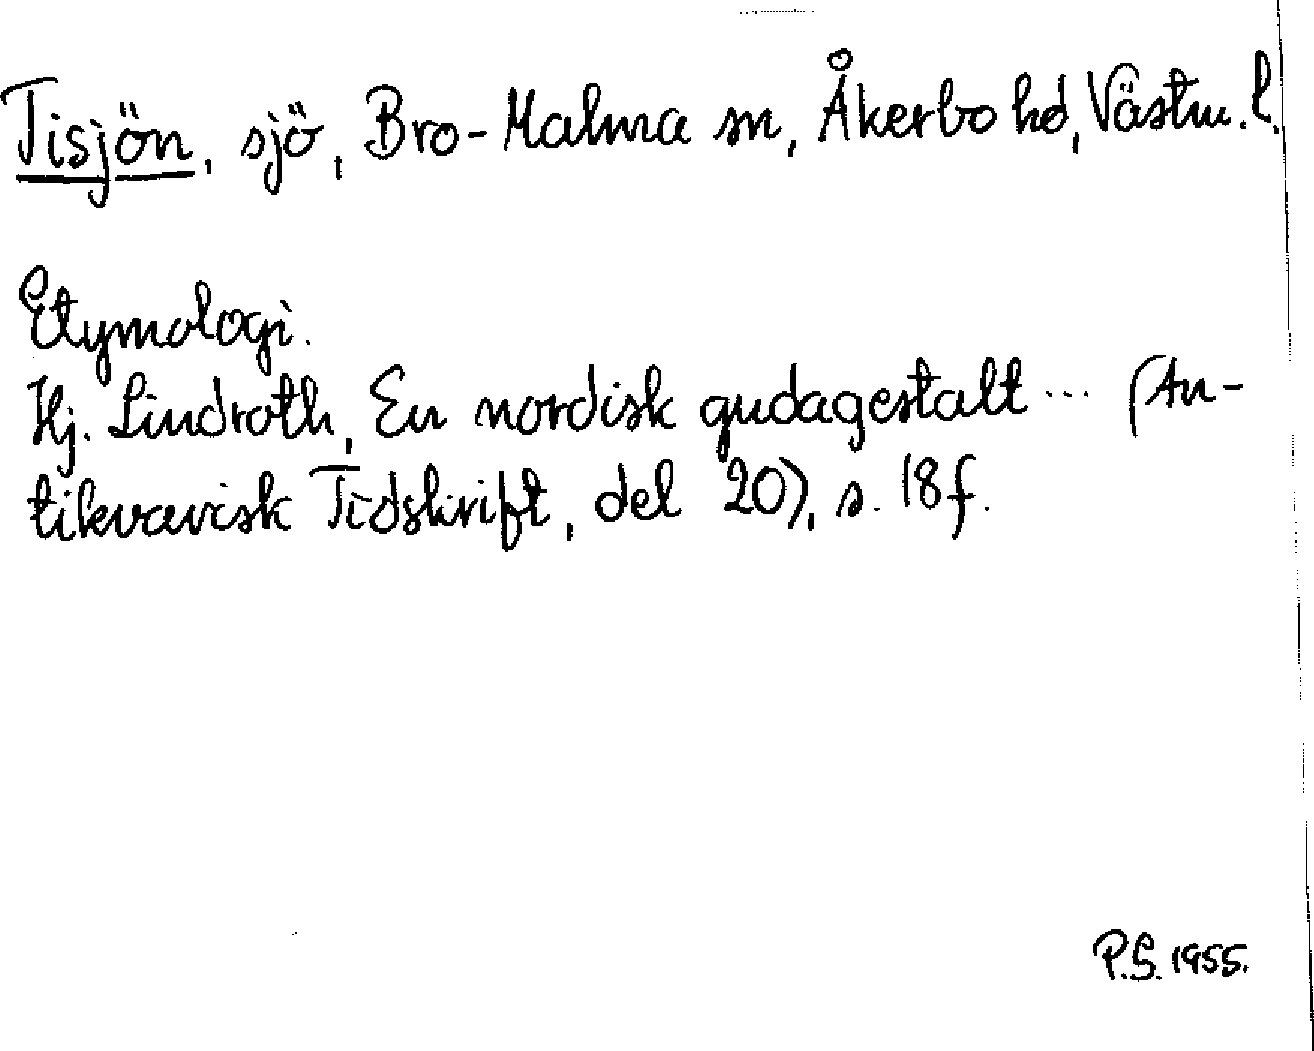 Tisjön, sjö, Bro-Malma sn, Åkerbo hd, Västm. l.
Etymologi.
Hj. Lindroth, En nordisk gudagestalt ... (An-
tikvarisk Tidskrift, del 20), s. 18 f.
P.S. 1955.